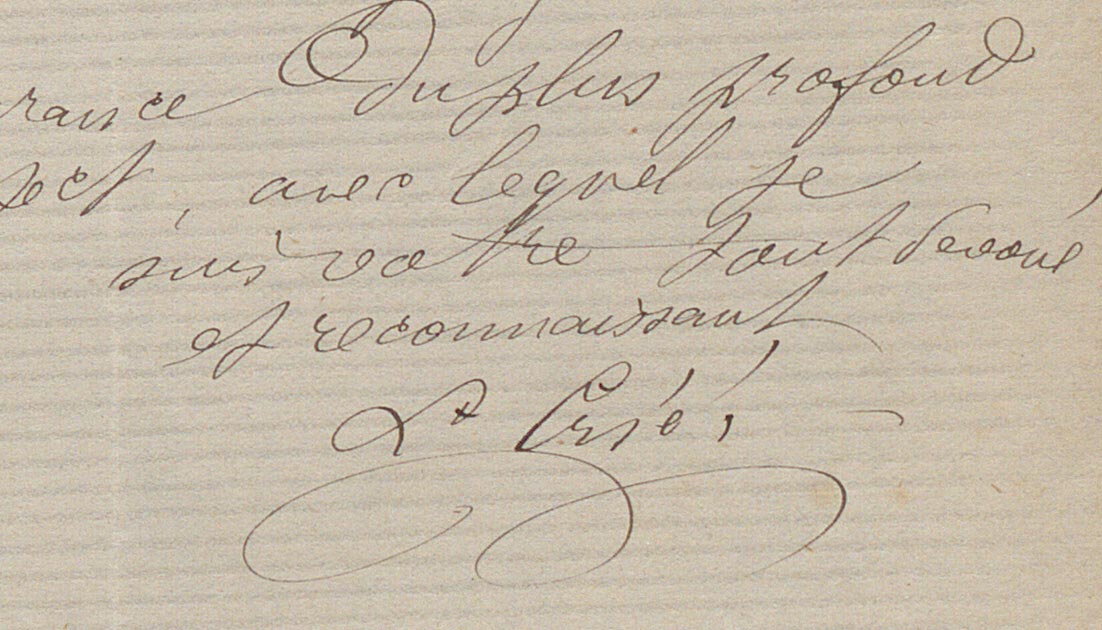 rance Du plus profond
pect, avec lequel je
suis votre tout devoué
et reconnaissant
Ls Crié,